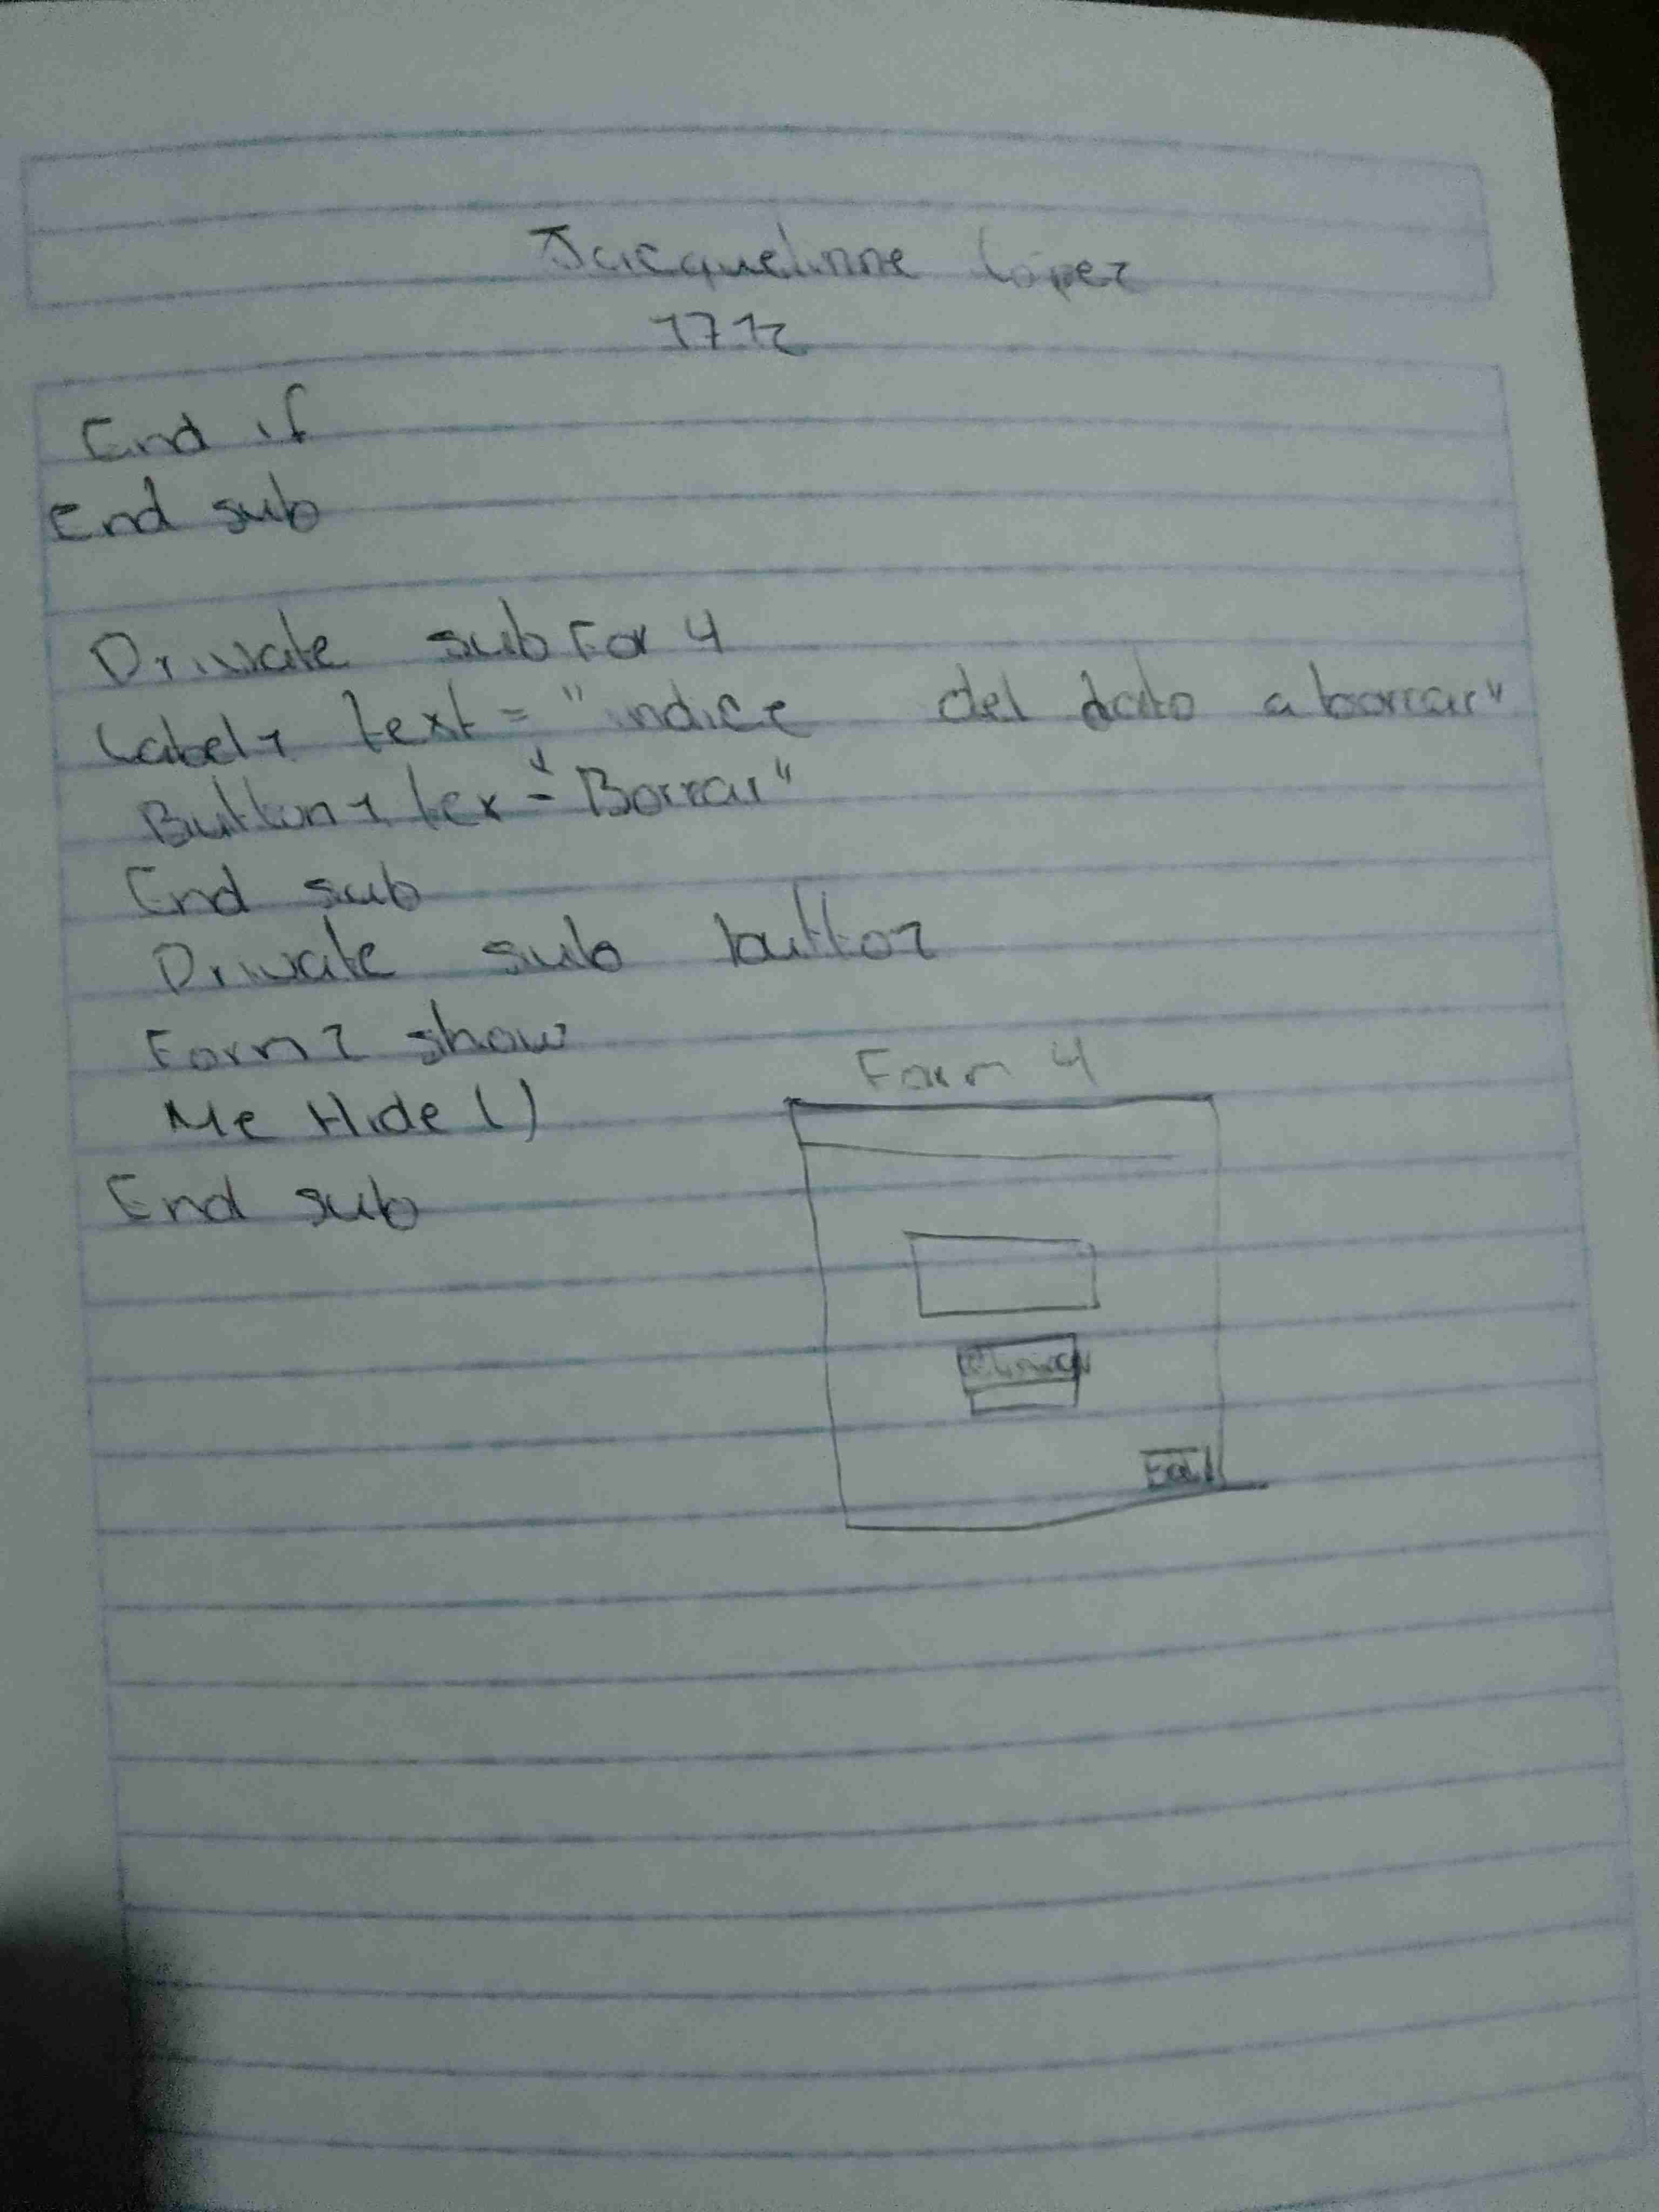 Jacquelinne López
End if
End sub
Private sub For 4
Label1 text = "indice del dato a borrar"
Button1 tex = "Borrar"
End sub
Private sub butto2
Form2 show
Me Hide ()
End sub
Form 4